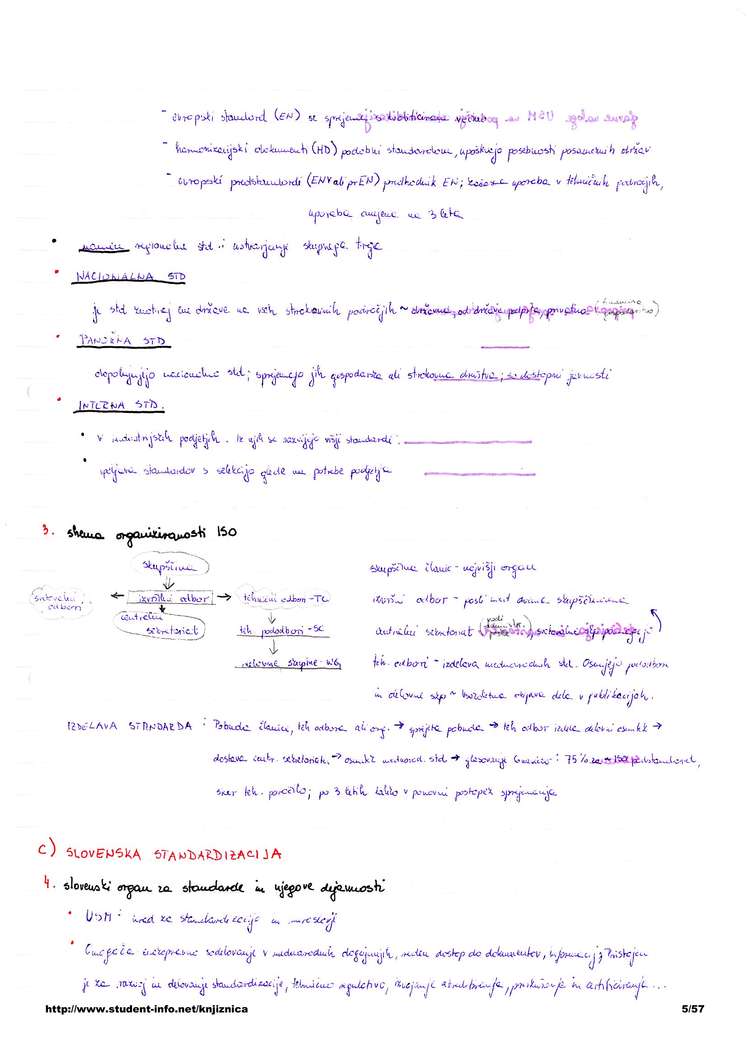 - evropski standard (EN) se sprejmejo
- harmonizacijski dokumenti (HD) podobni standardom, upoštevajo posebnosti posameznih držav
- evropski predstandardi (ENV ali prEN) predhodnik EN; začasna uporaba v tehničnih področjih,
uporaba omejena na 3 leta
• namen regionalne std.: ustvarjanje skupnega trga
• NACIONALNA STD
je std znotraj ene države na vseh strokovnih področjih ~ državna, od države podprta, privatna
• PANOŽNA STD
dopolnjujejo nacionalno std; sprejemajo jih gospodarska ali strokovna društva; so dostopni javnosti
• INTERNA STD.
• v industrijskih podjetjih. Iz njih se razvijejo višji standardi.
• izpeljava standardov s selekcijo glede na potrebe podjetja
3. shema organiziranosti ISO
skupščina
svetovalni odbori ← izvršilni odbor → tehnični odbori - TC
centralni sekretariat
teh pododbori - SC
delovne skupine - WG
skupščina članic - najvišji organ
izvršni odbor - posli med dvema skupščinama
centralni sekretariat
teh. odbori - izdelava mednarodnih std. Osnujejo pododbore
in delovne skp ~ brezplačna objava dela v publikacijah.
IZDELAVA STANDARDA : Pobuda članice, teh odbora ali org. → sprejeta pobuda → teh odbor izdela delovni osnutek →
dostava centr. sekretariatu → osnutek mednarod. std → glasovanje članic : 75% za ~ ISO standard,
sicer teh. poročilo; po 3 letih lahko v ponovni postopek sprejemanja
C) SLOVENSKA STANDARDIZACIJA
4. slovenski organ za standarde in njegove dejavnosti
• USM : urad za standardizacijo in meroslovje
• Omogoča enakopravno sodelovanje v mednarodnih dogajanjih, nuden dostop do dokumentov, informacij; Pristojen
je za razvoj in delovanje standardizacije, tehnične regulative, in certificiranja ...
http://www.student-info.net/knjiznica
5/57